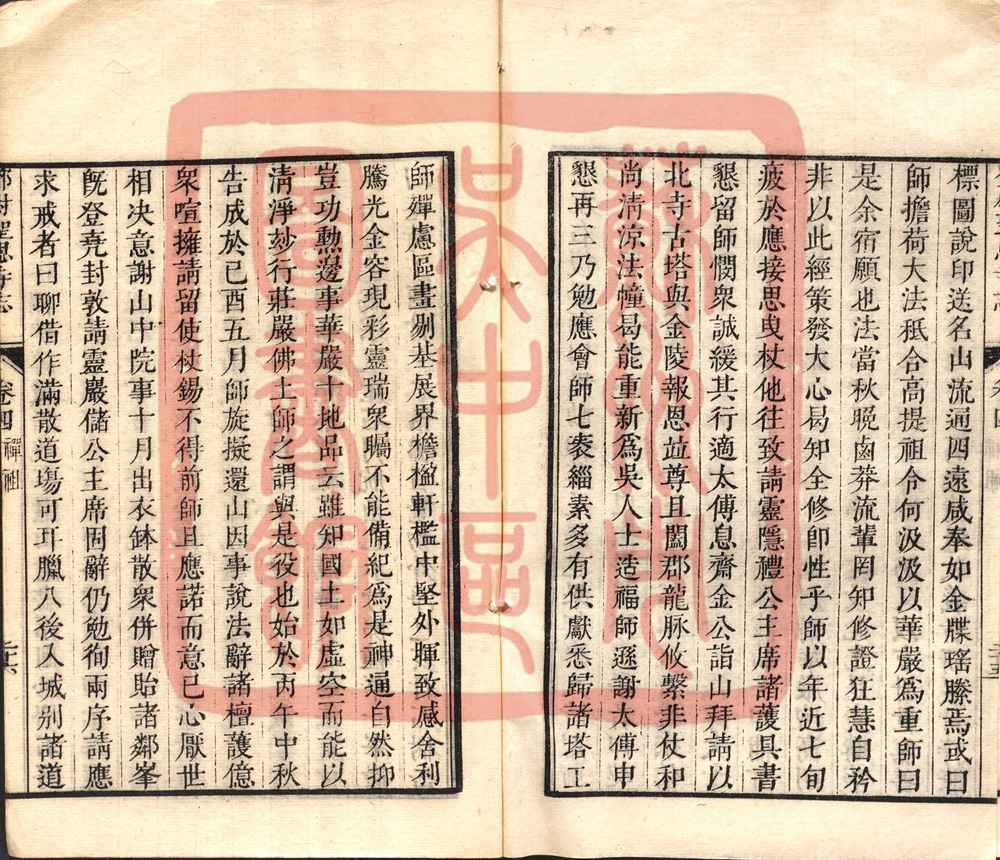 標圖說印送名山流通四遠咸奉如金牒瑤縢焉或曰
師擔荷大法秪合高提祖令何汲汲以華嚴爲重師曰
是余宿願也法當秋晚鹵莽流輩罔知修證狂慧自矜
非以此經策發大心曷知全修卽性乎師以年近七旬
疲於應接思曳杖他往致請靈隱禮公主席諸護具書
懇留師憫衆誠緩其行適太傅息齋金公詣山拜請以
北寺古塔與金陵報恩並尊且闔郡龍脉攸繫非仗和
尚清涼法幢曷能重新爲吳人士造福師遜謝太傅申
懇再三乃勉應會師七袠緇素多有供獻悉歸諸塔工
師殫慮區畫剏基展界檐楹軒檻中堅外暉致感舍利
騰光金容現彩靈瑞衆矚不能備紀爲是神通自然抑
豈功勲邊事華嚴十地品云雖知國土如虛空而能以
清淨妙行莊嚴佛土師之謂與是役也始於丙午中秋
告成於己酉五月師旋擬還山因事說法辭諸檀護億
衆喧擁請留使杖錫不得前師且應諾而意已心厭世
相决意謝山中院事十月出衣鉢散衆併贈貽諸鄰峯
旣登堯封敦請靈巖儲公主席固辭仍勉徇兩序請應
求戒者曰聊借作滿散道塲可耳臘八後入城别諸道
聖恩寺志
卷四
禪祖